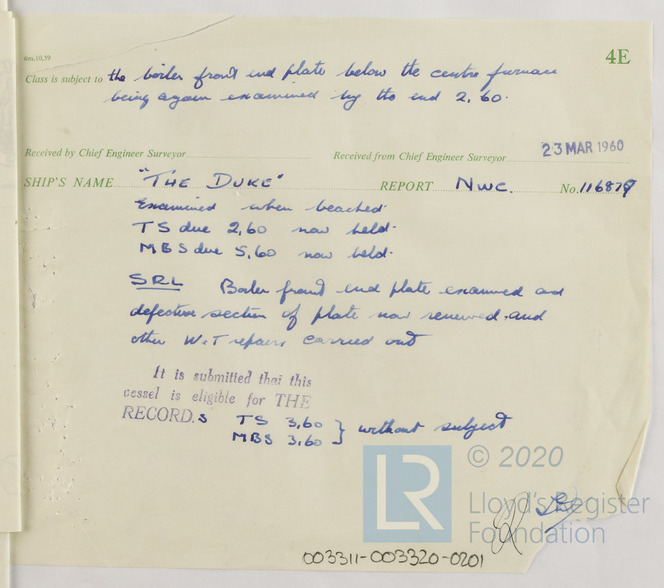 6m,10,59
4E
Class is subject to the boiler front end plate below the centre furnace
being again examined by the end 2,60.
Received by Chief Engineer Surveyor
Received from Chief Engineer Surveyor 23 MAR 1960
SHIP'S NAME "THE DUKE" REPORT NWC. No. 116879
Examined when beached.
TS due 2,60 now held.
MBS due 5,60 now held.
SRL Boiler front end plate examined and
defective section of plate now renewed, and
other W.T repairs carried out
It is submitted that this
vessel is eligible for THE
RECORD.s TS 3,60 } without subject
MBS 3,60
LR © 2020
Lloyd's Register
Foundation
003311-003320-0201